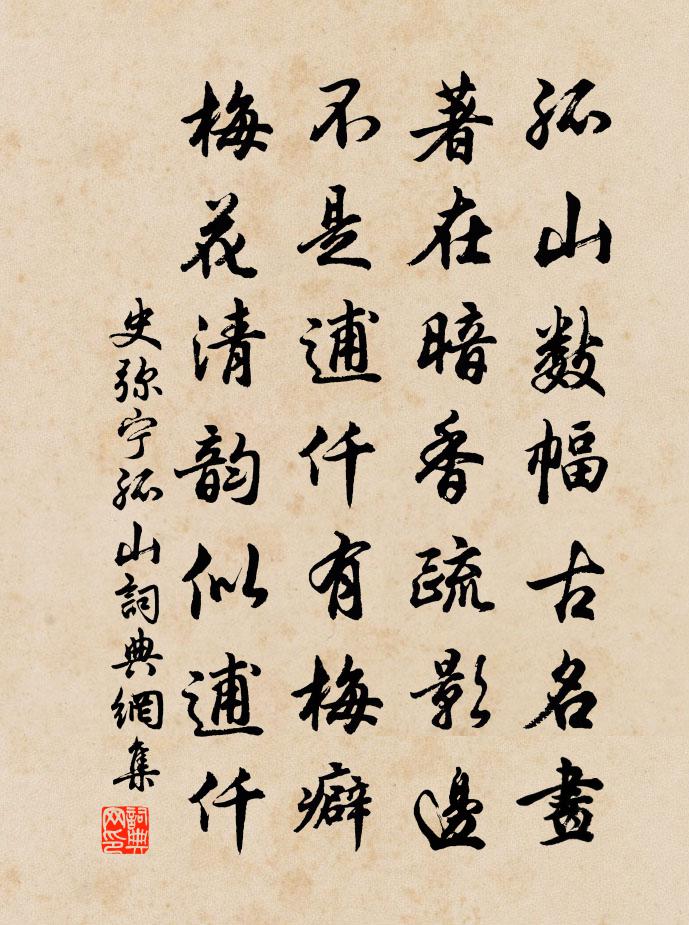 孤山數幅古名畫
著在暗香疏影邊
不是逋仟有梅癖
梅花清韵似逋仟
史弥宁孤山詞典網集
詞典网印